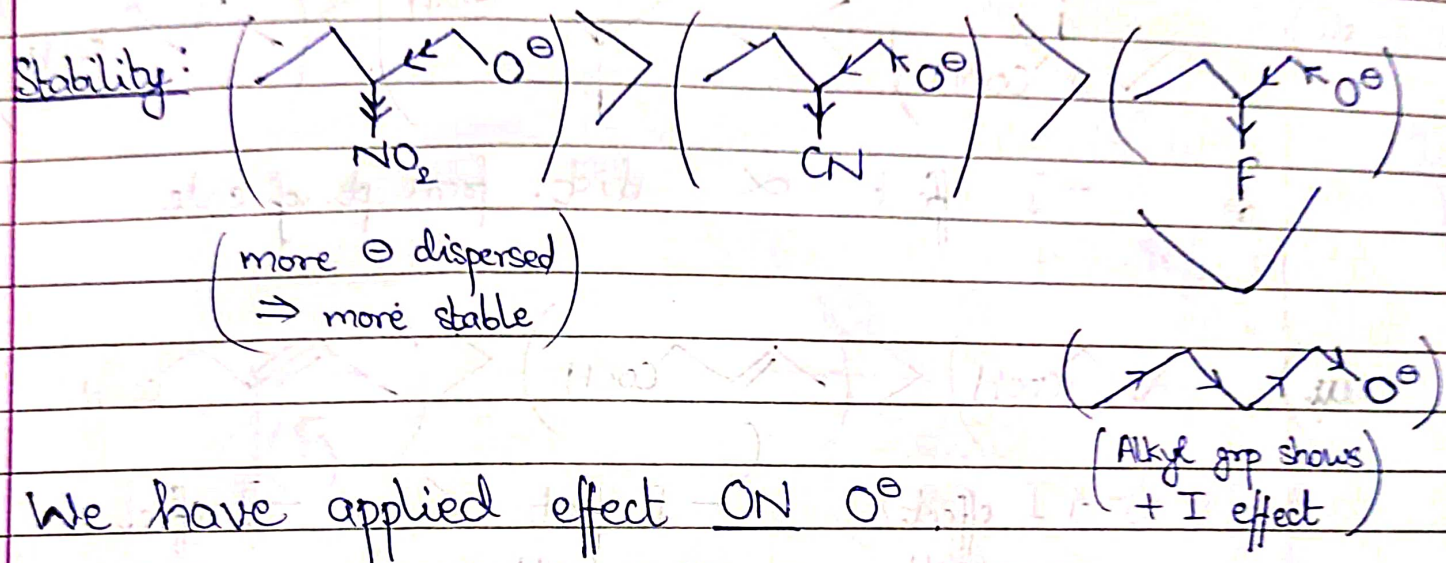 Stability: ( O⊖ ) > ( O⊖ ) > ( O⊖ )
NO₂ CN F
(more ⊖ dispersed
⇒ more stable)
>
( O⊖ )
(Alkyl grp shows
+ I effect)
We have applied effect ON O⊖.